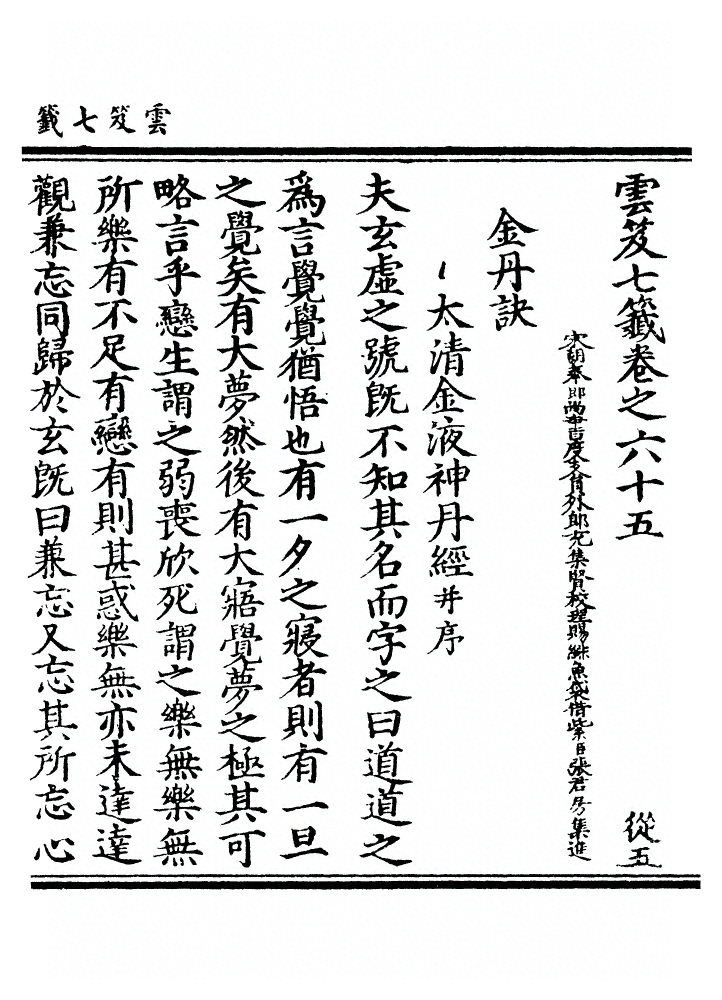 雲笈七籤
雲笈七籤卷之六十五 從五
宋朝奉郎尚書度支員外郎充集賢校理賜緋魚袋借紫臣張君房集進
金丹訣
太清金液神丹經并序
夫玄虛之號既不知其名而字之曰道道之
爲言覺覺猶悟也有一夕之寢者則有一旦
之覺矣有大夢然後有大寤覺夢之極其可
略言乎戀生謂之弱喪欣死謂之樂無樂無
所樂有不足有戀有則甚惑樂無亦未達達
觀兼忘同歸於玄既曰兼忘又忘其所忘心